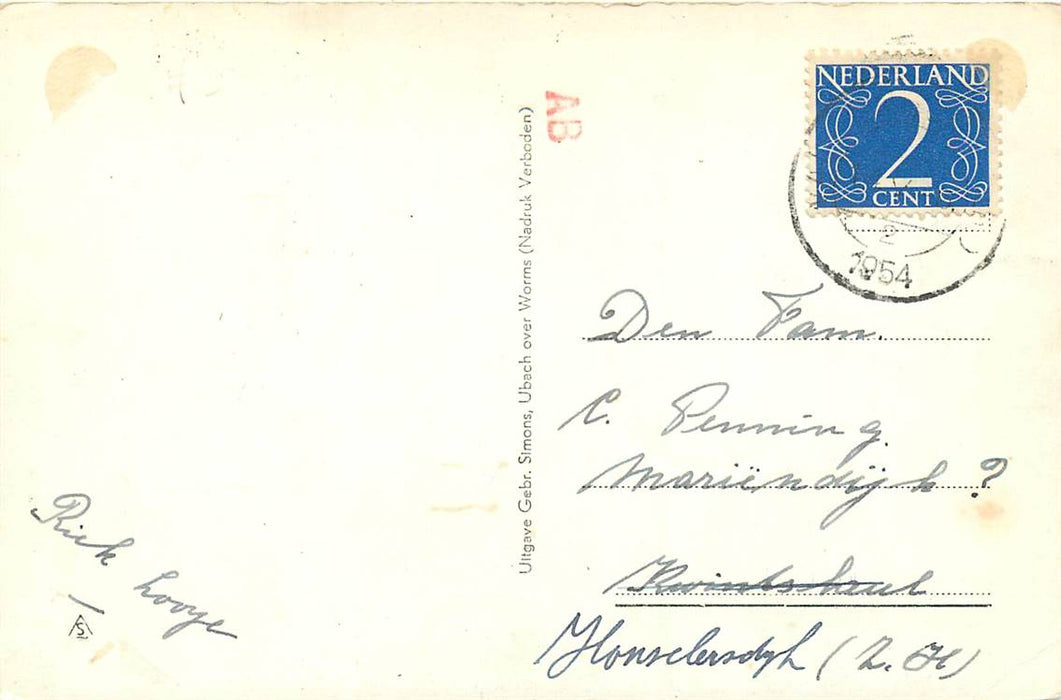 NEDERLAND
2
CENT
2
1954
AB
Uitgave Gebr. Simons, Ubach over Worms (Nadruk Verboden)
Den Fam.
C. Penning.
Mariëndijk ?
Kwintsheul
Honselersdijk (Z. H)
Riek
S